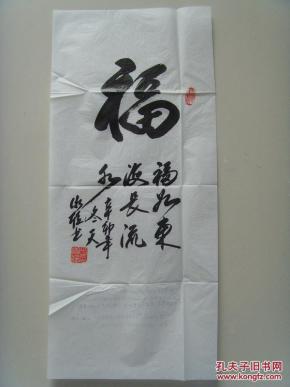 福
福如東
海長流
水
辛卯年
冬天
孔夫子旧书网